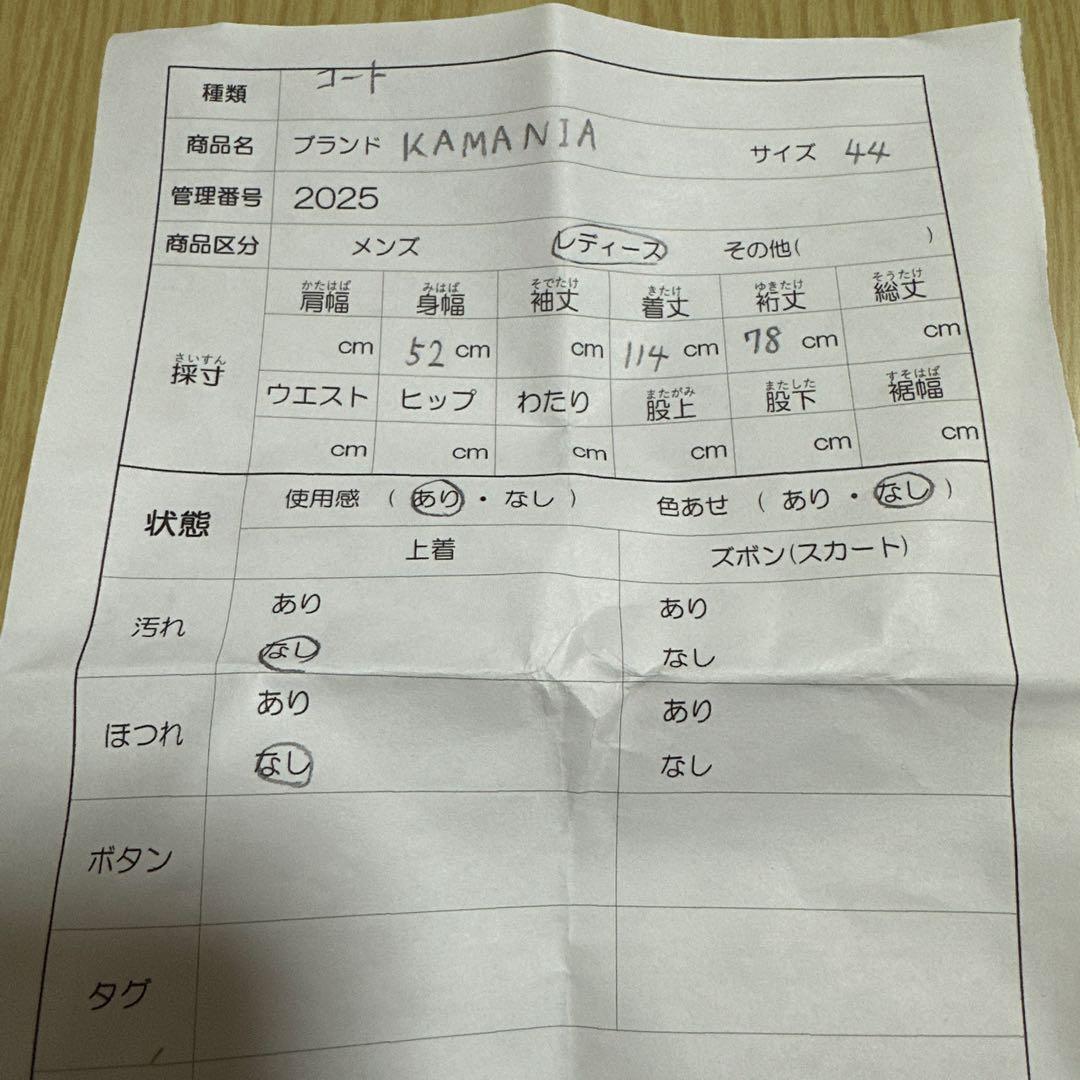 種類 コート
商品名 ブランド KAMANIA サイズ 44
管理番号 2025
商品区分 メンズ レディース その他( )
かたはば みはば そでたけ きたけ ゆきたけ そうたけ
肩幅 身幅 袖丈 着丈 裄丈 総丈
cm 52 cm cm 114 cm 78 cm cm
さいすん
採寸
またがみ またした すそはば
ウエスト ヒップ わたり 股上 股下 裾幅
cm cm cm cm cm cm
状態 使用感 ( あり ・ なし ) 色あせ ( あり ・ なし )
上着 ズボン(スカート)
汚れ あり なし あり なし
ほつれ あり なし あり なし
ボタン
タグ